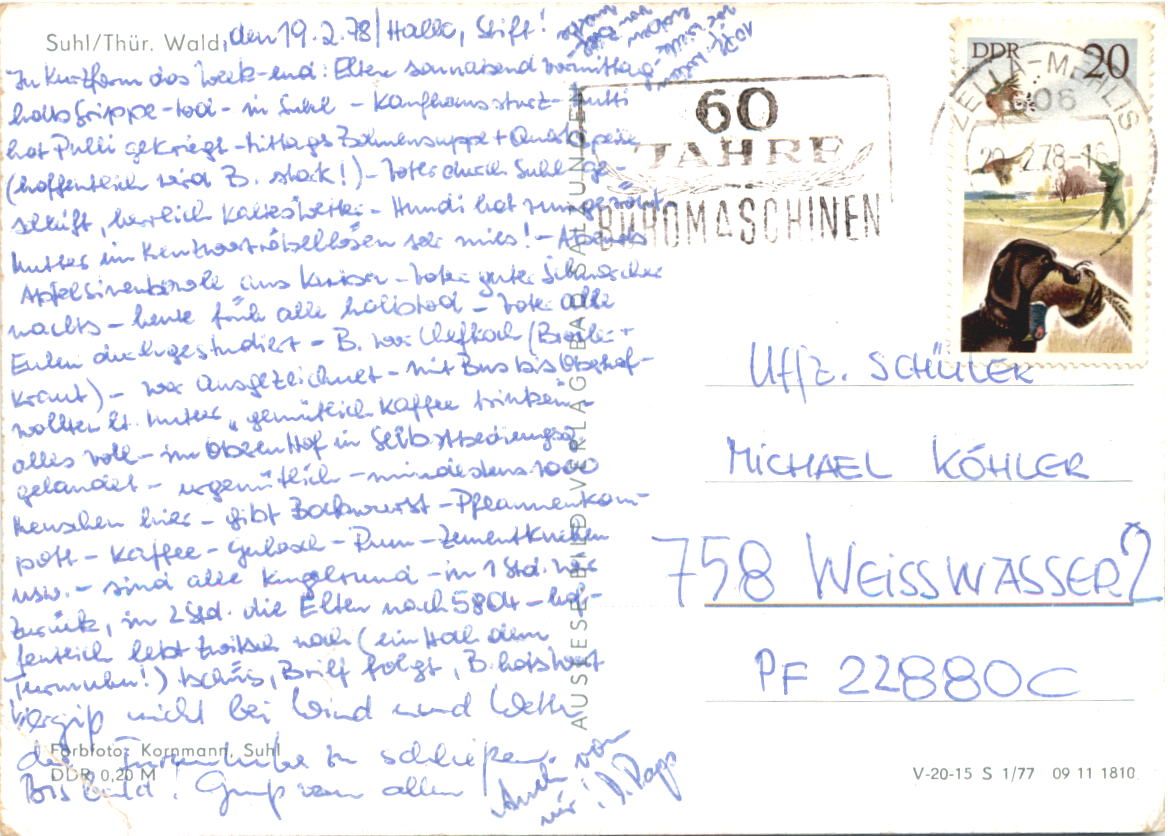 Suhl/Thür. Wald, den 19.2.78/Hallo, Stift!
In Kurzform das Week-end: Eltern sonnabend vormittag
halb Grippe-tod - in Suhl - Kaufhaussturz - Mutti
hat Pulli gekriegt - mittags Bohnensuppe + Quarkspeise
(hoffentlich wird B. stark!) - Vater durch Suhl ge-
schleift, herrlich kaltes Wetter - Hundi hat rumgezirpt
Mutter im Kreuzworträtsellösen sehr mies! - Abends
Apfelsinenbowle aus - Vater guter Schnarcher
nachts - heute früh alle halbtod - Vater alle
Eulen durchgestudiert - B. war Chefkoch (Broiler +
Kraut) - war ausgezeichnet - mit Bus bis Oberhof -
wollten lt. Mutter "gemütlich Kaffee trinken" -
alles voll - im Oberen Hof in Selbstbedienungsg.
gelandet - urgemütlich - mindestens 1000
Menschen hier - gibt Bockwurst - Pflaumenkom-
pott - Kaffee - Gulasch - Rum - Zementkuchen
usw. - sind alle kugelrund - in 1 Std. wir
zurück, in 2 Std. die Eltern nach 5804 - hof-
fentlich lebt Zwitsch noch (ein Hoch dem
Turmuhu!) tschüs, Brief folgt, B. hat's Wort
Vergiß nicht bei Wind und Wetter
die Turmluke zu schließen.
Bis bald! Gruß von allen!
Auch von
mir! D. Papp
Farbfoto: Kornmann, Suhl
DDR 0,20 M
AUSLESE-BILD-VERLAG BAD SALZUNGEN
60
JAHRE
BÜROMASCHINEN
DDR 20
ZELLA-MEHLIS
606
20.2.78-16
Uffz. SCHÜLER
MICHAEL KÖHLER
758 WEISSWASSER 2
PF 22880C
V-20-15 S 1/77 09 11 1810